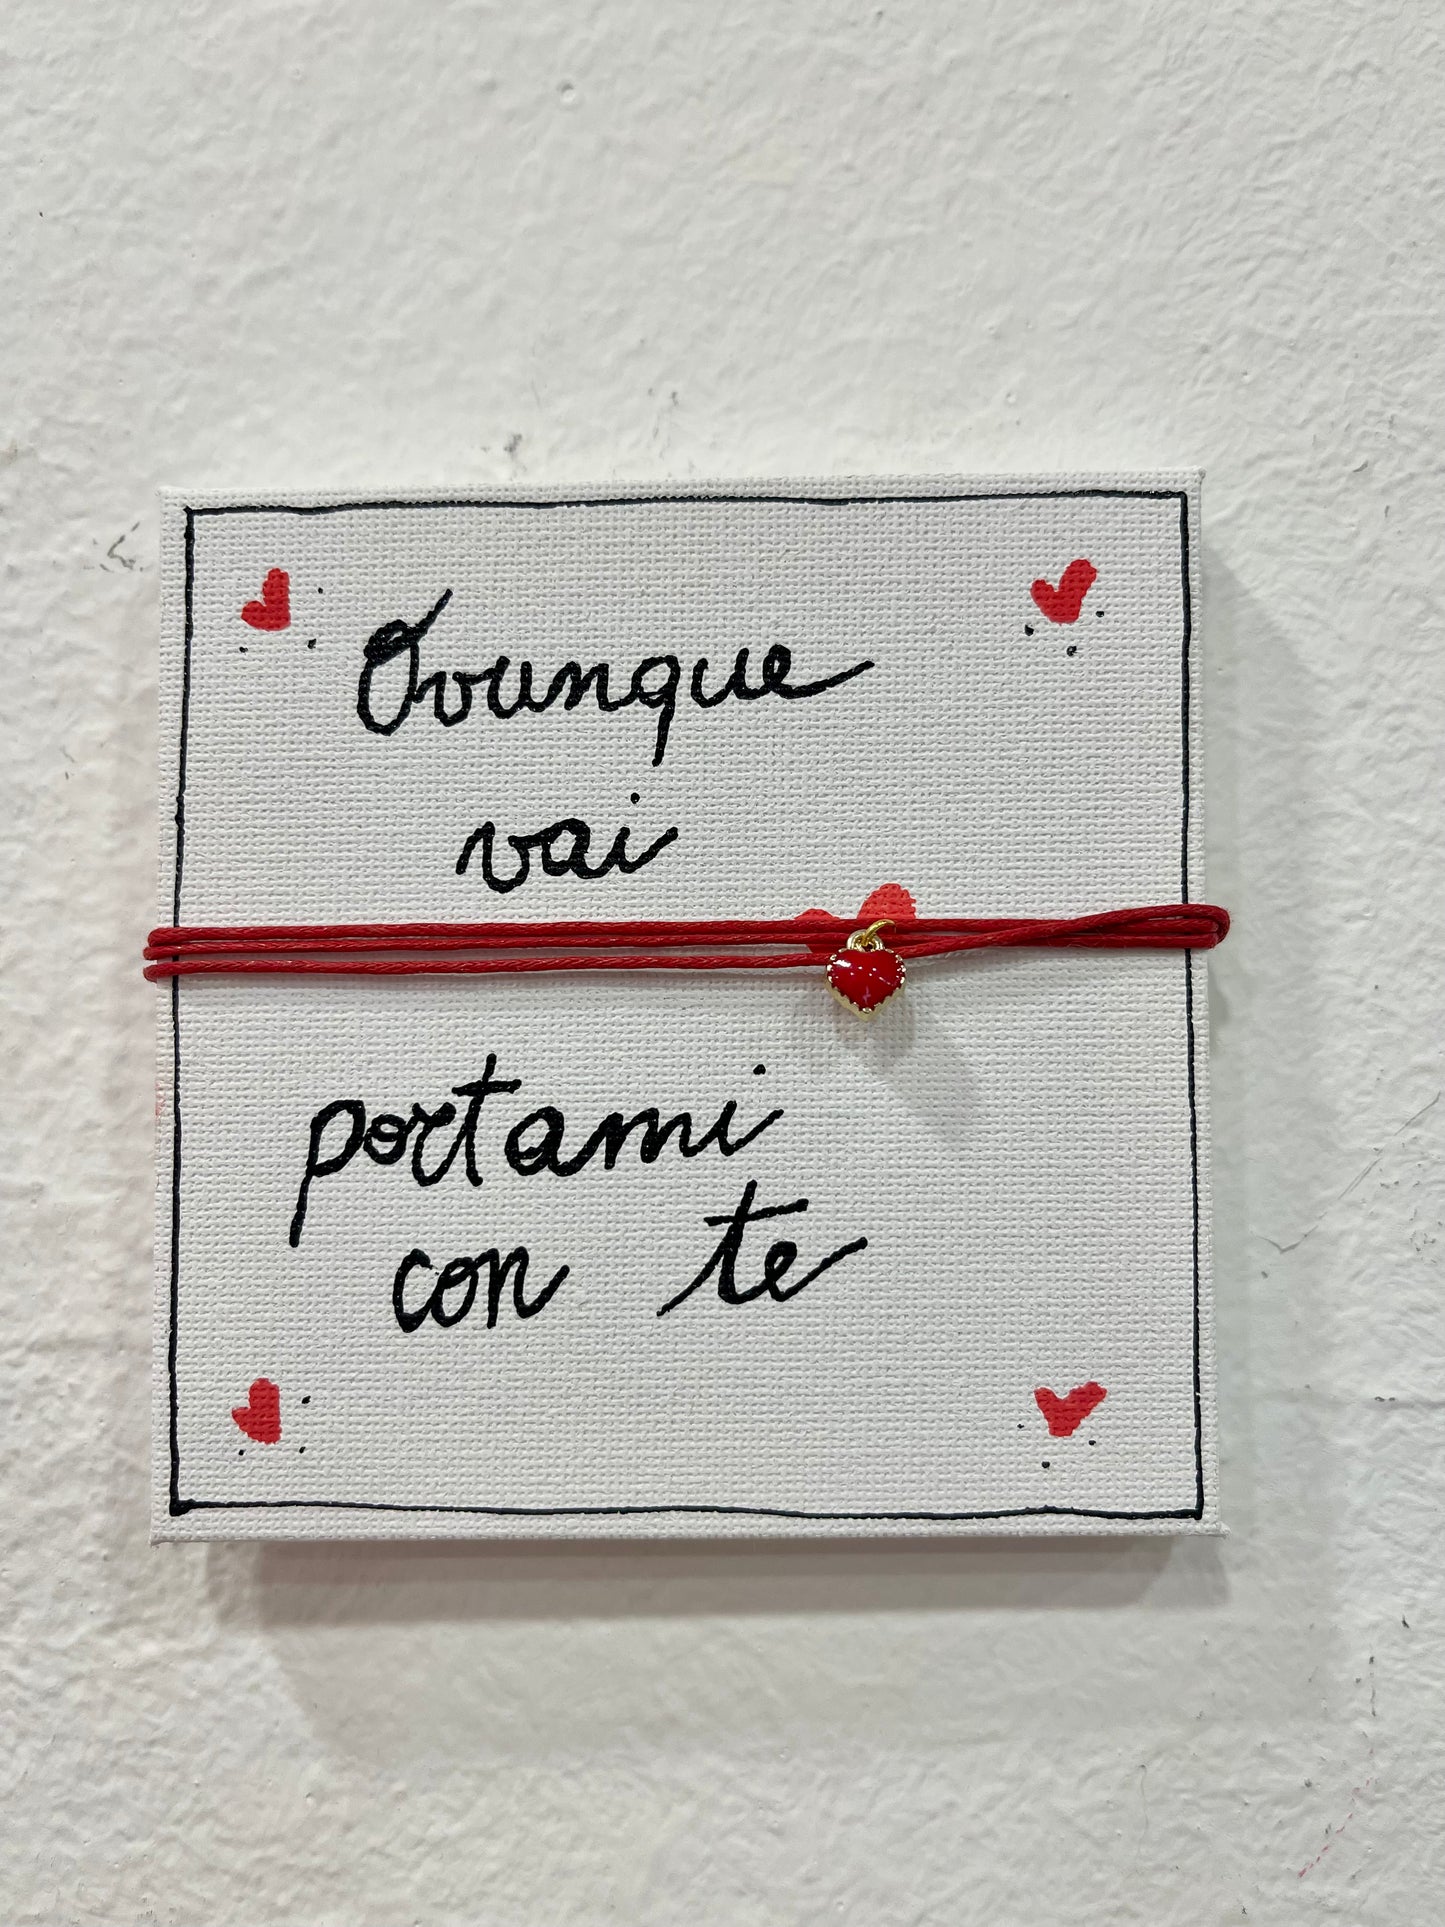 Ovunque
vai
portami
con te